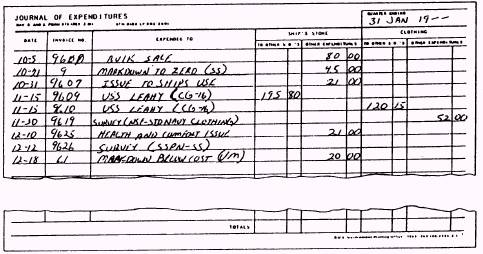 JOURNAL OF EXPENDITURES
QUARTER ENDING
31 JAN 19--
SHIP'S STORE CLOTHING
DATE INVOICE NO. EXPENDED TO TO OTHER S O 'S OTHER EXPENDITURES TO OTHER S O 'S OTHER EXPENDITURES
10-5 BULK SALE 80 00
10-21 9 MARKDOWN TO ZERO (SS) 45 00
10-31 9607 ISSUE TO SHIPS USE 21 00
11-15 9609 USS LEAHY (CG-16) 195 80
11-15 9610 USS LEAHY (CG-16) 120 15
11-30 9619 SURVEY (NSF-STD NAVY CLOTHING) 52 00
12-10 9625 HEALTH AND COMFORT ISSUE 21 00
12-12 9626 SURVEY (SSPN-SS)
12-18 61 MARKDOWN BELOW COST (V/M) 20 00
TOTALS